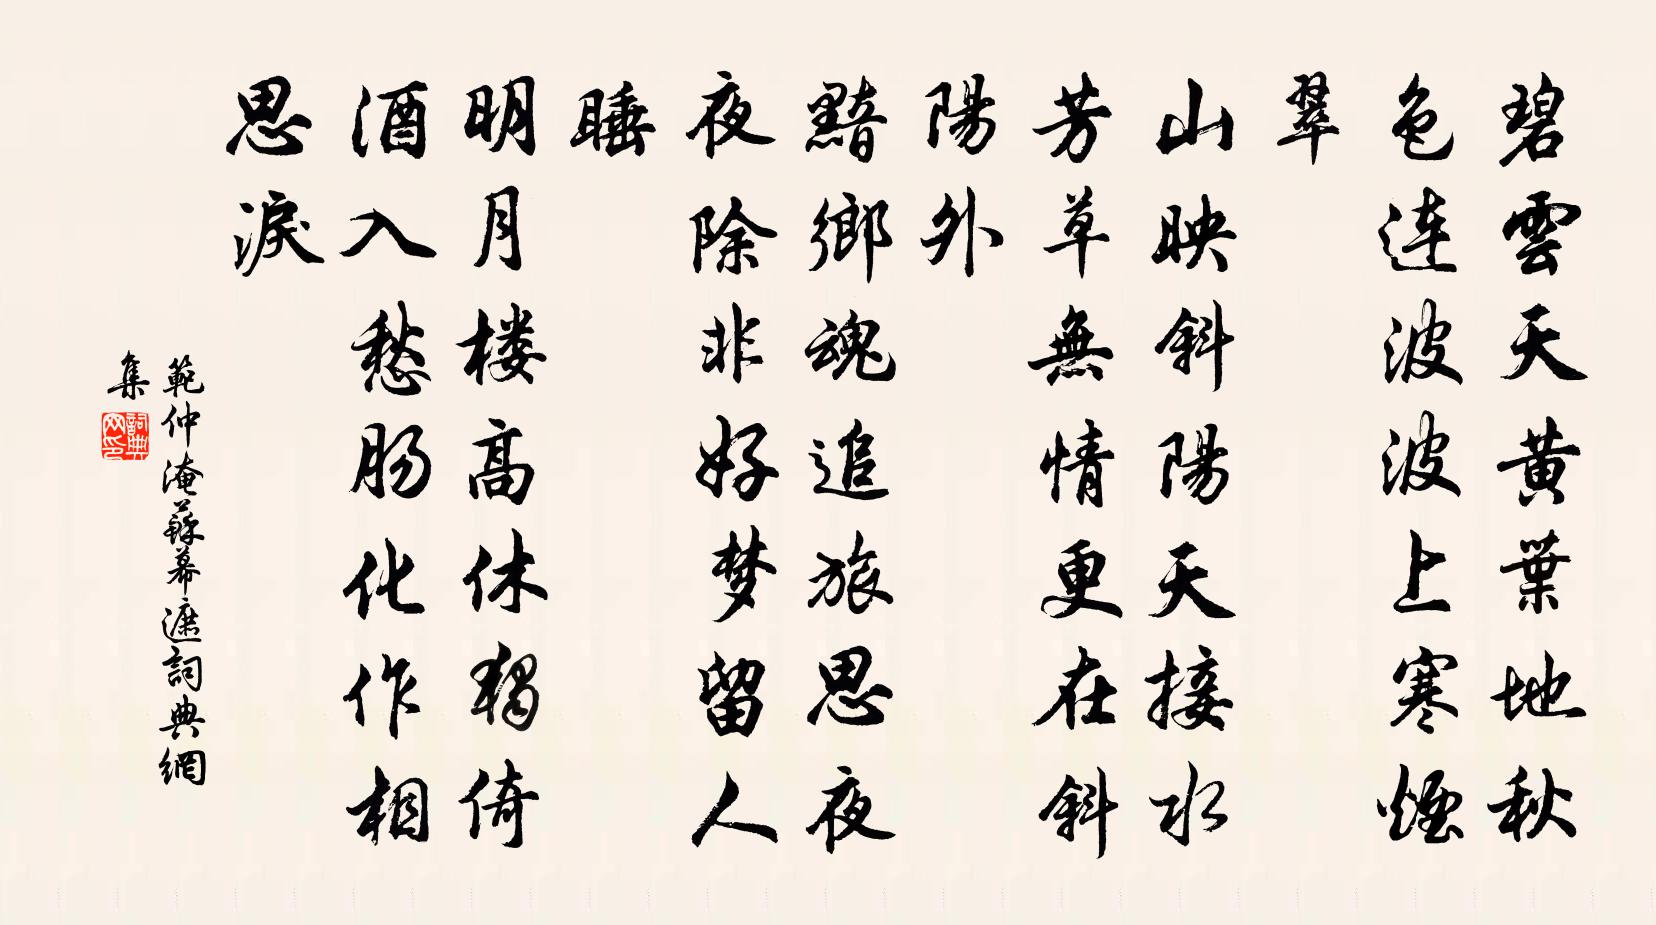 碧雲天黄葉地秋
色連波波上寒煙
翠
山映斜陽天接水
芳草無情更在斜
陽外
黯鄉魂追旅思夜
夜除非好梦留人
睡
明月楼高休獨倚
酒入愁肠化作相
思淚
範仲淹蘇幕遮詞典網
集
詞典
网印